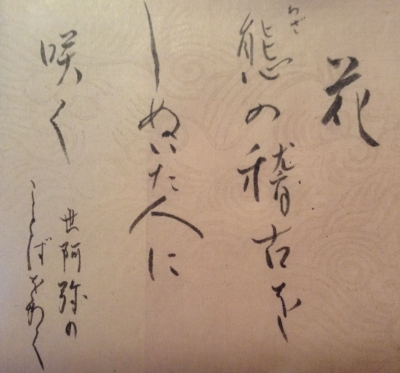 花
わざ
態の稽古を
しぬいた人に
咲く
世阿弥の
ことばをかく